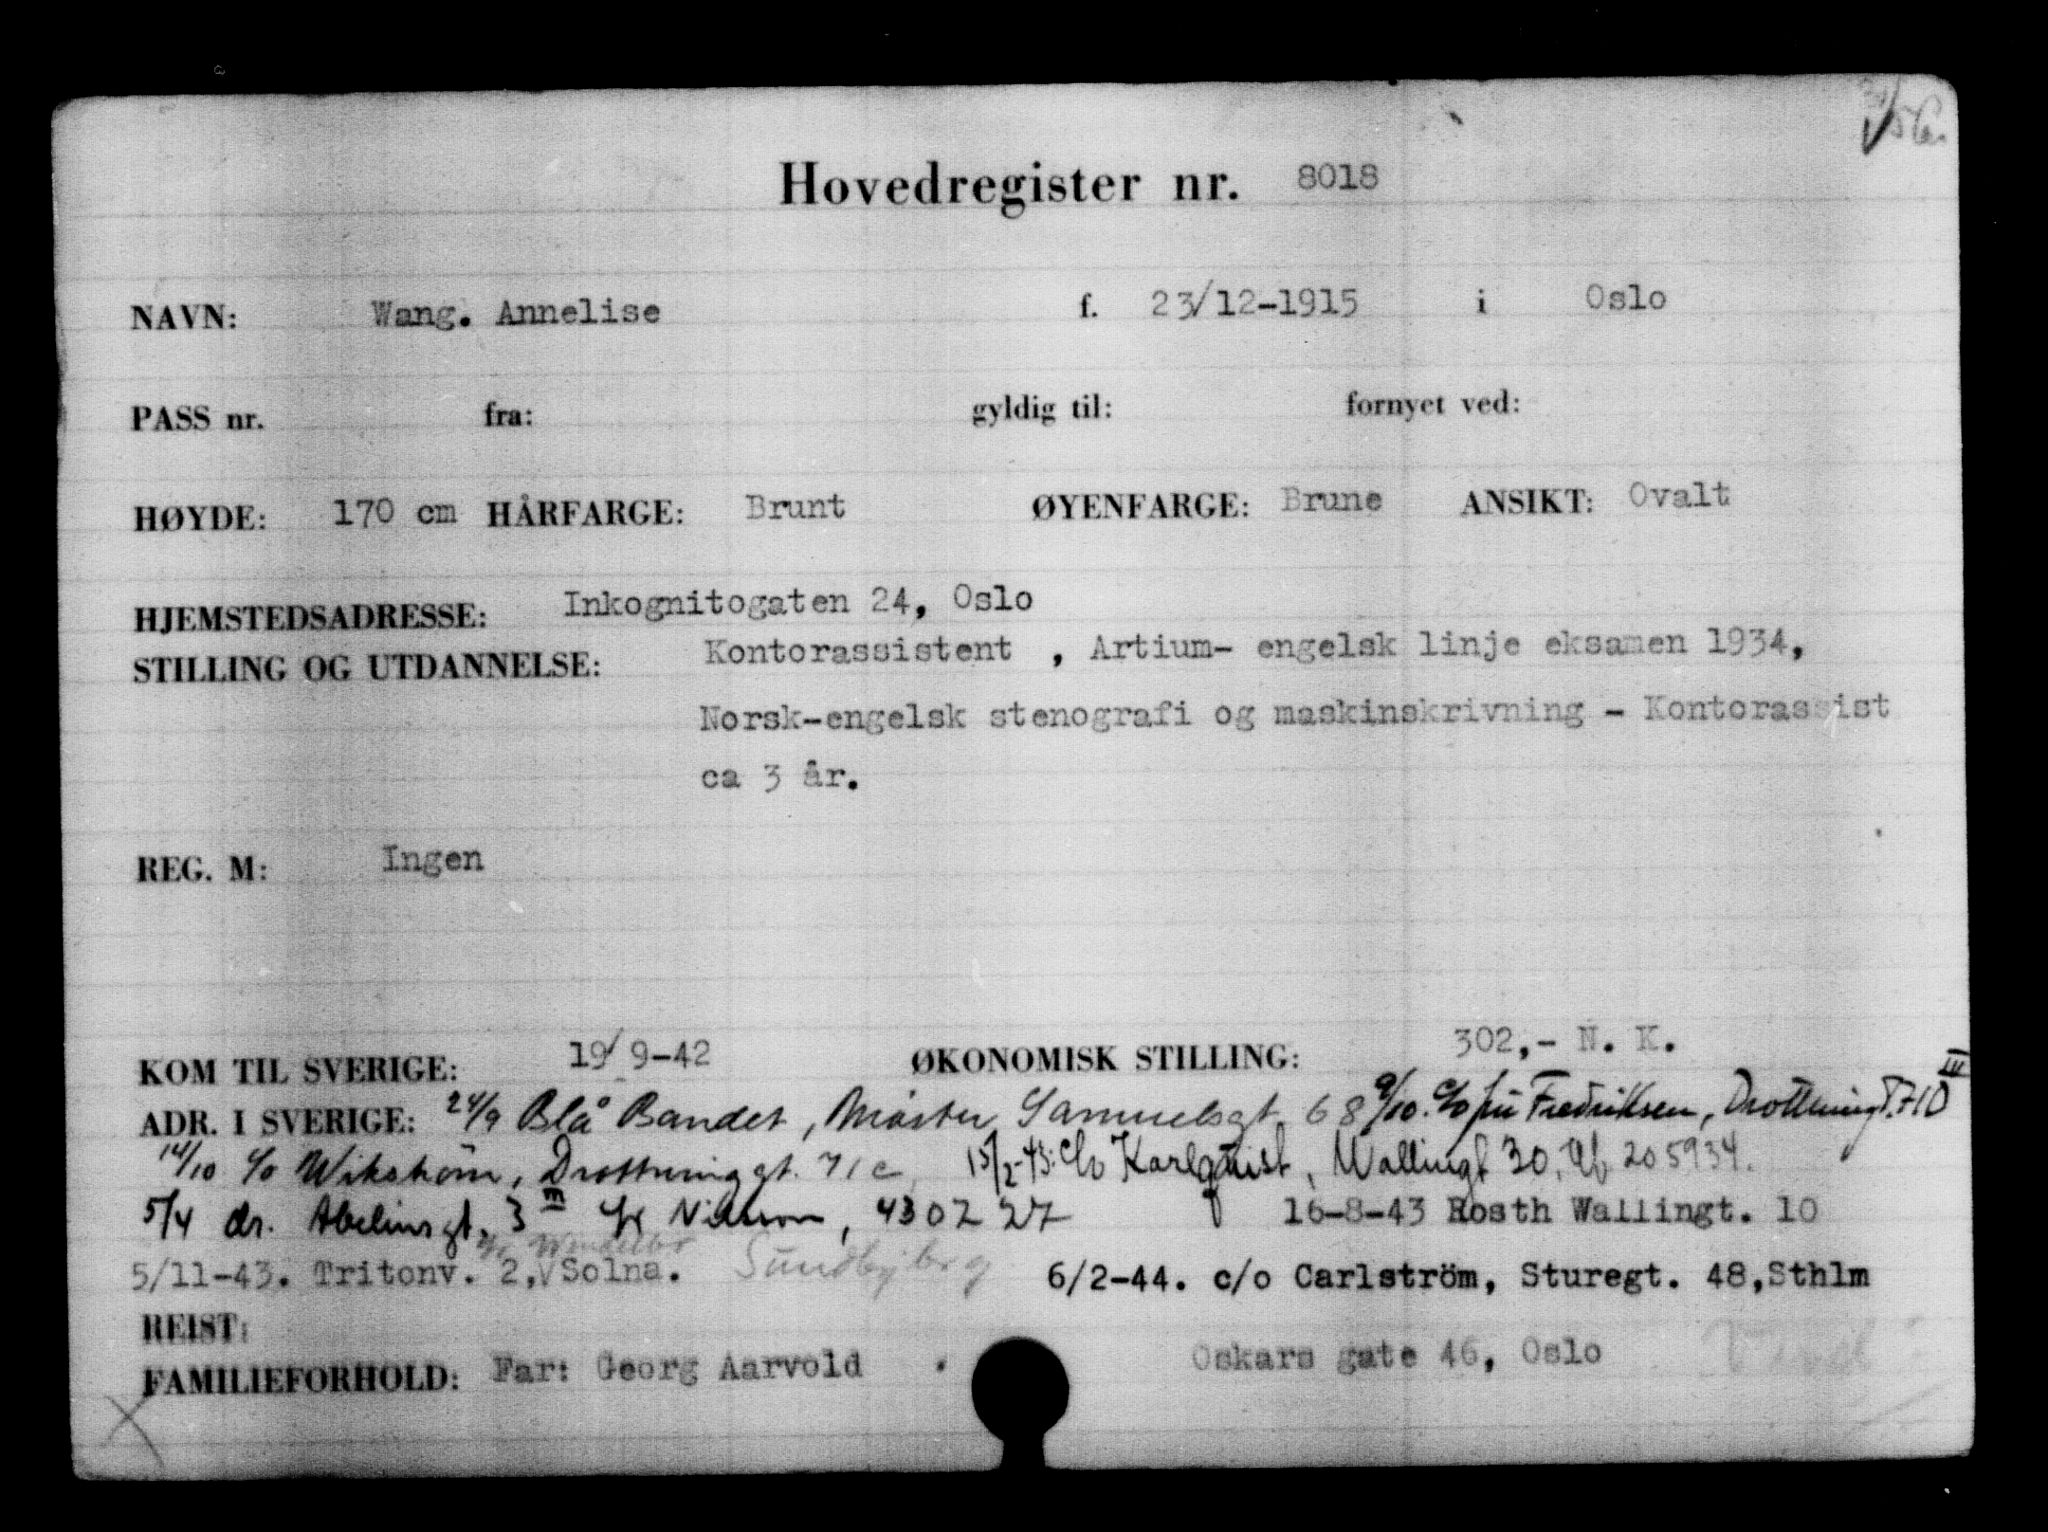 Hovedregister nr. 8018
NAVN: Wang. Annelise f. 23/12-1915 i Oslo
PASS nr. fra: gyldig til: fornyet ved:
HØYDE: 170 cm HÅRFARGE: Brunt ØYENFARGE: Brune ANSIKT: Ovalt
HJEMSTEDSADRESSE: Inkognitogaten 24, Oslo
STILLING OG UTDANNELSE: Kontorassistent , Artium- engelsk linje eksamen 1934,
Norsk-engelsk stenografi og maskinskrivning - Kontorassist
ca 3 år.
REG. M: Ingen
KOM TIL SVERIGE: 19/9-42 ØKONOMISK STILLING: 302,- N. K.
ADR. I SVERIGE: 24/9 Blå Bandet, Mäster Samuelsgt. 68 9/10. c/o fru Fredriksen, Drottningt. 71D III
14/10 c/o Wikström, Drottninggt. 71c 15/2-43: c/o Karlquist, Wallingt 30, 205934.
5/4 dr. Abelinsgt. 3 III Nilsson, 430227 16-8-43 Rosth Wallingt. 10
5/11-43. Tritonv. 2, Solna. Sundbyberg 6/2-44. c/o Carlström, Sturegt. 48, Sthlm
REIST:
FAMILIEFORHOLD: Far: Georg Aarvold . Oskars gate 46, Oslo